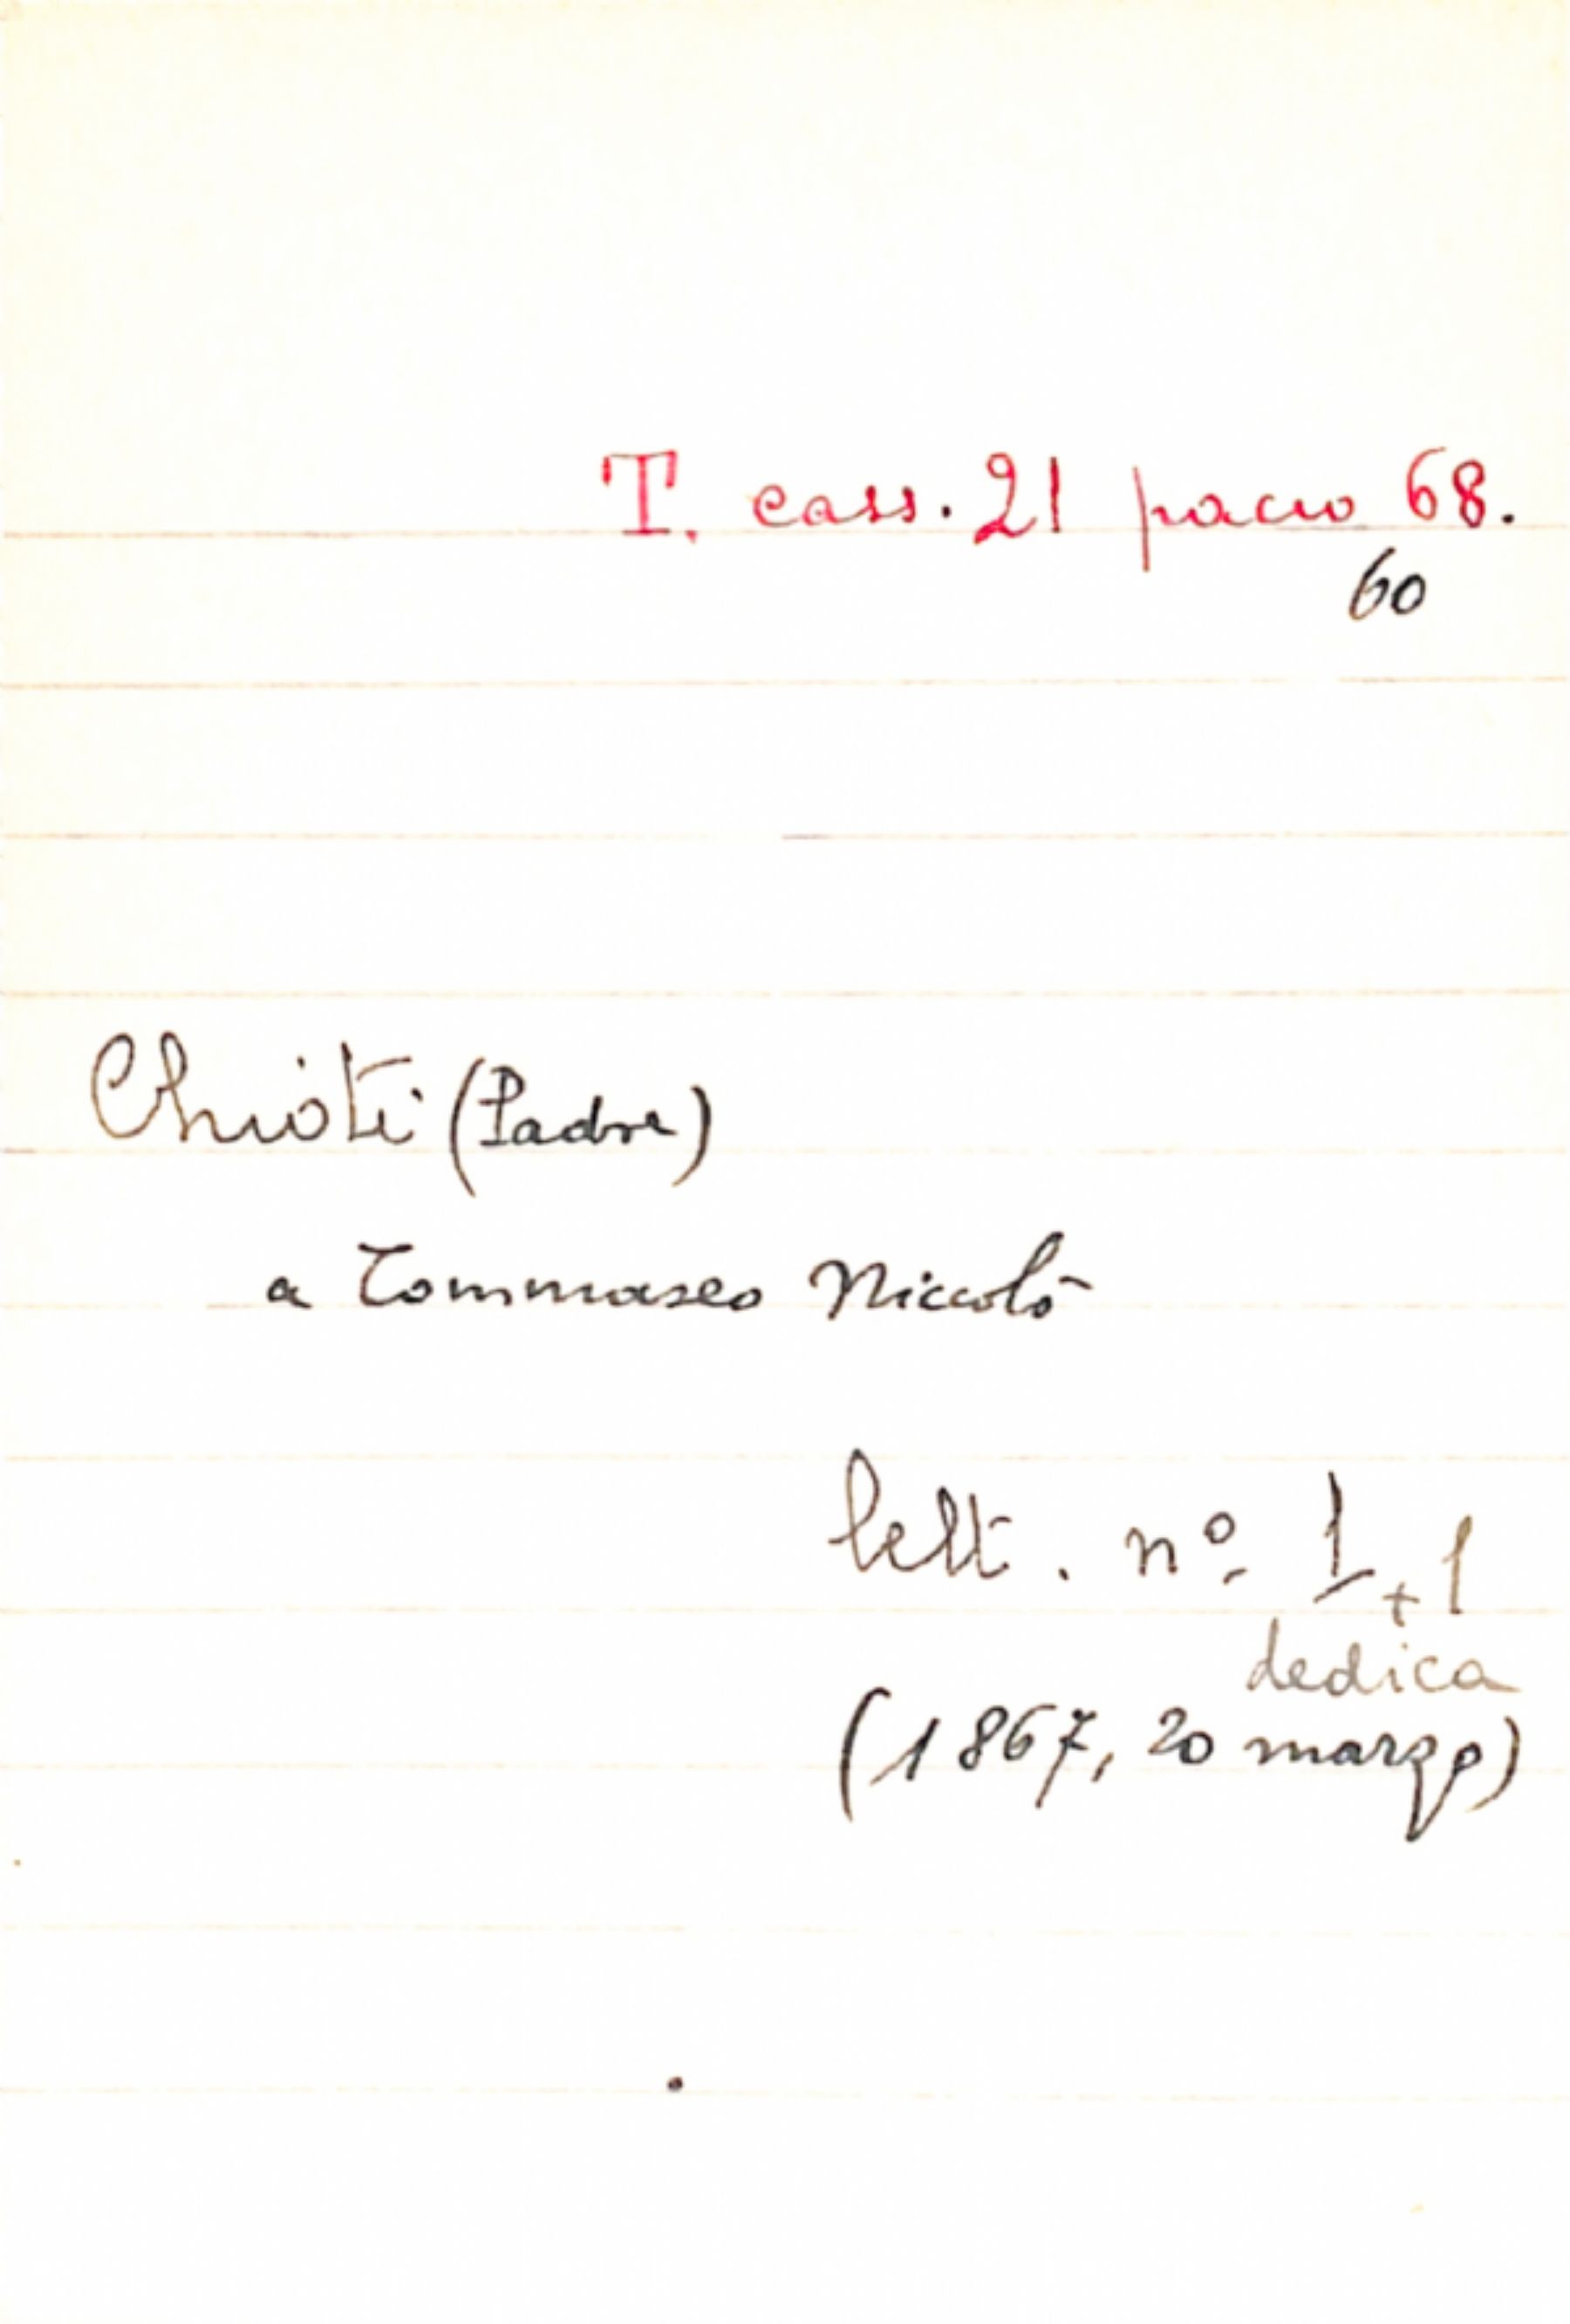 T. cass. 21 pacco 68.
60
Chioti (Padre)
a Tommaseo Niccolò
lett. nº 1 + 1
dedica
(1867, 20 marzo)